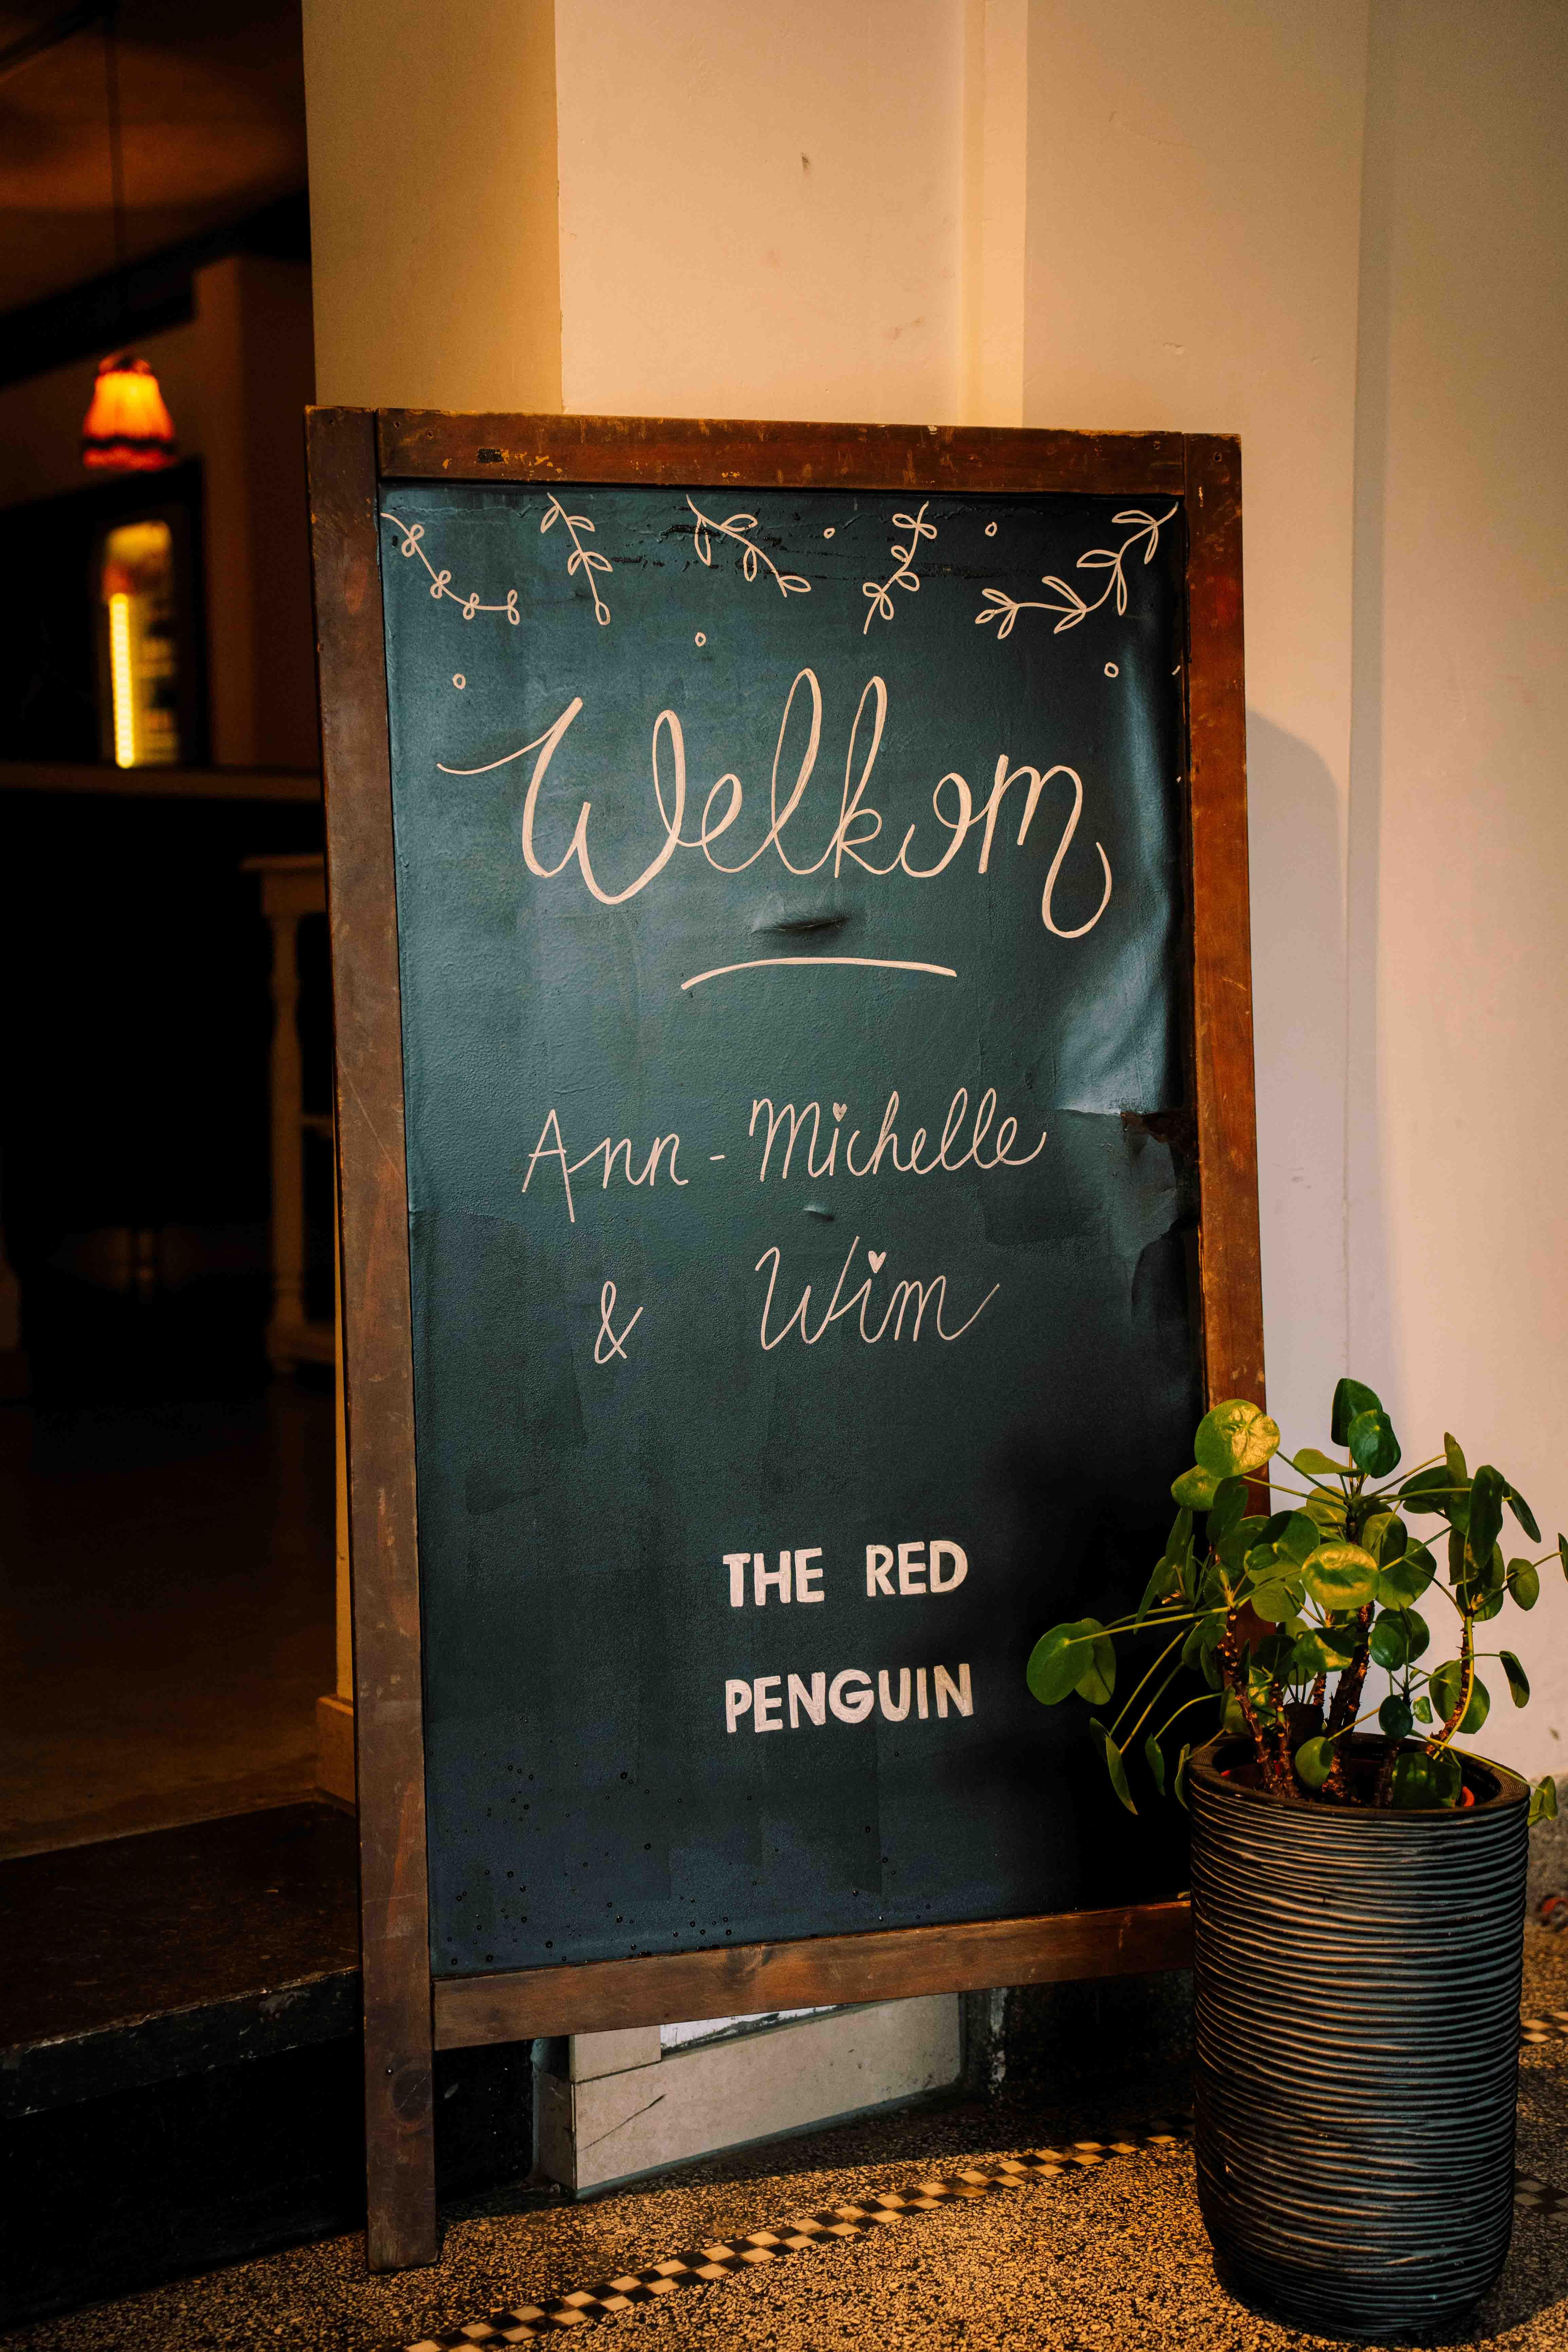 Welkom
Ann-Michelle
& Wim
THE RED
PENGUIN